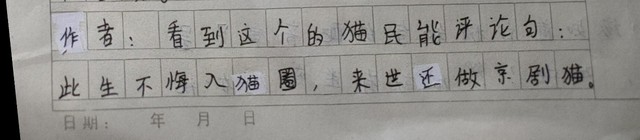 作者：看到这个的猫民能评论句：
此生不悔入猫圈，来世还做京剧猫。
日期：    年    月    日